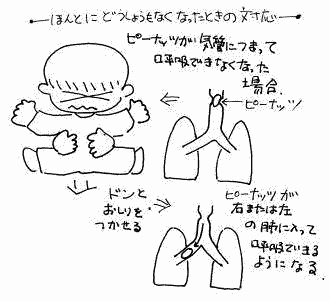 ほんとにどうしょうもなくなったときの対応
ピーナッツが気管につまって
呼吸できなくなった
場合.
ピーナッツ
ドンと
おしりを
つかせる
ピーナッツが
右または左
の肺に入って
呼吸できる
ようになる.